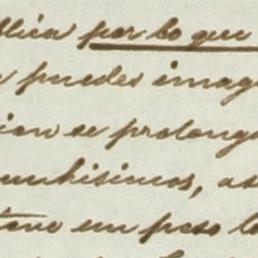 llica por lo que
puedes imag
cion se prolong
unhisimos, as
tave un peso l